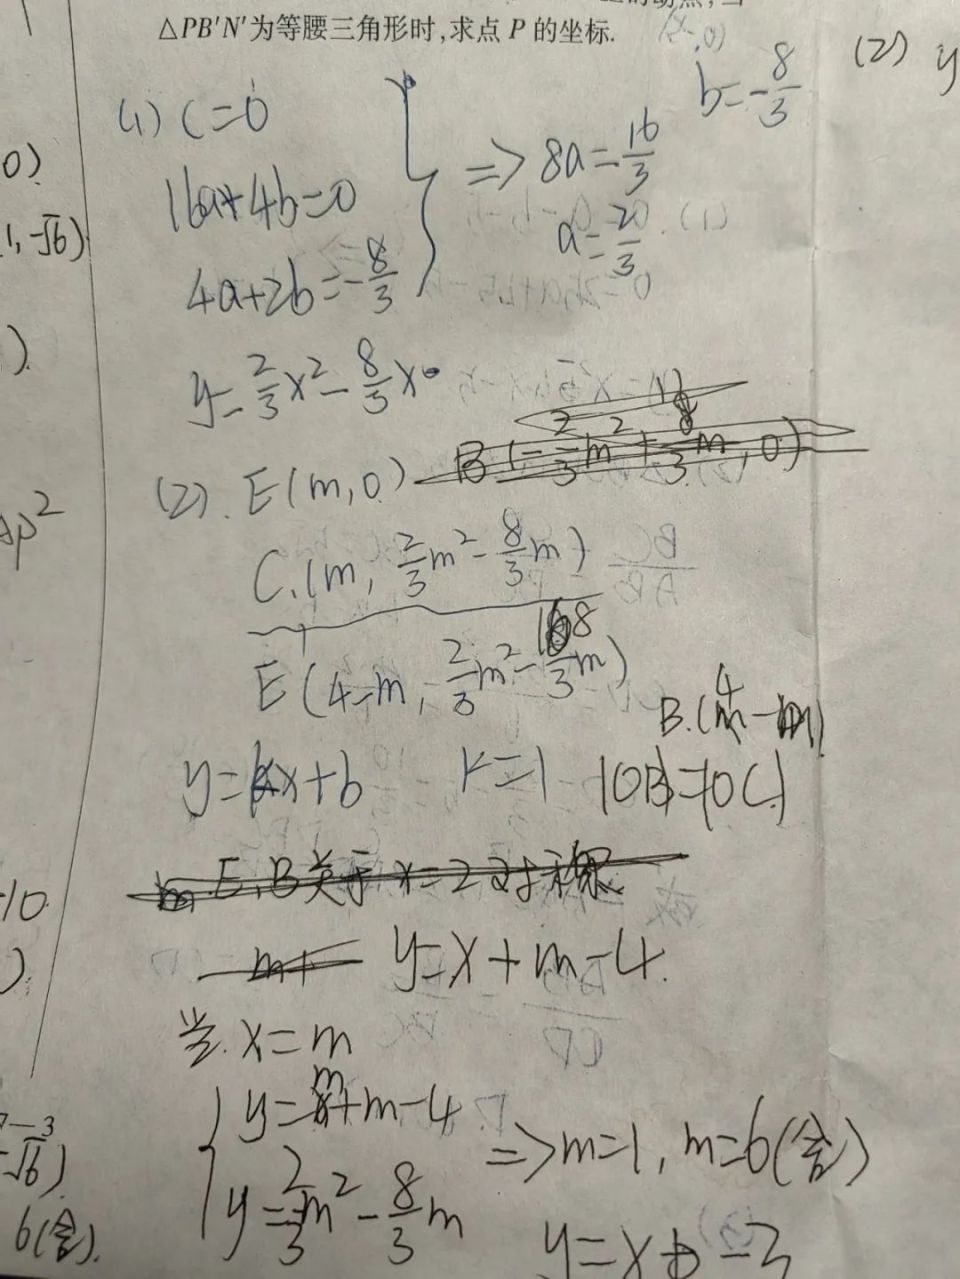 △PB′N′为等腰三角形时,求点 P 的坐标.
(2) y
b=-8/3
(1) C=0
16a+4b=0
4a+2b=-8/3
=> 8a=16/3
a=2/3
y=2/3x²-8/3x
(2). E(m,0)
C.(m, 2/3m²-8/3m)
E(4-m, 2/3m²-8/3m)
y=kx+b k=1 |OB|=|OC|
E、B关于x=2对称
m+ y=x+m-4.
当.x=m
y=m+m-4
y=2/3m²-8/3m
=>m=1,m=6(舍)
y=x-3
0).
1,-√6)
).
AP²
-10
).
-√6)
6(舍).